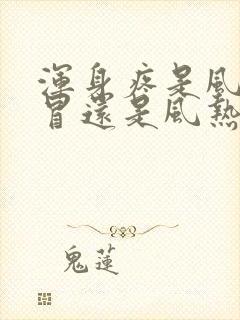 渾身疼是風
冒還是風熱
鬼蓮